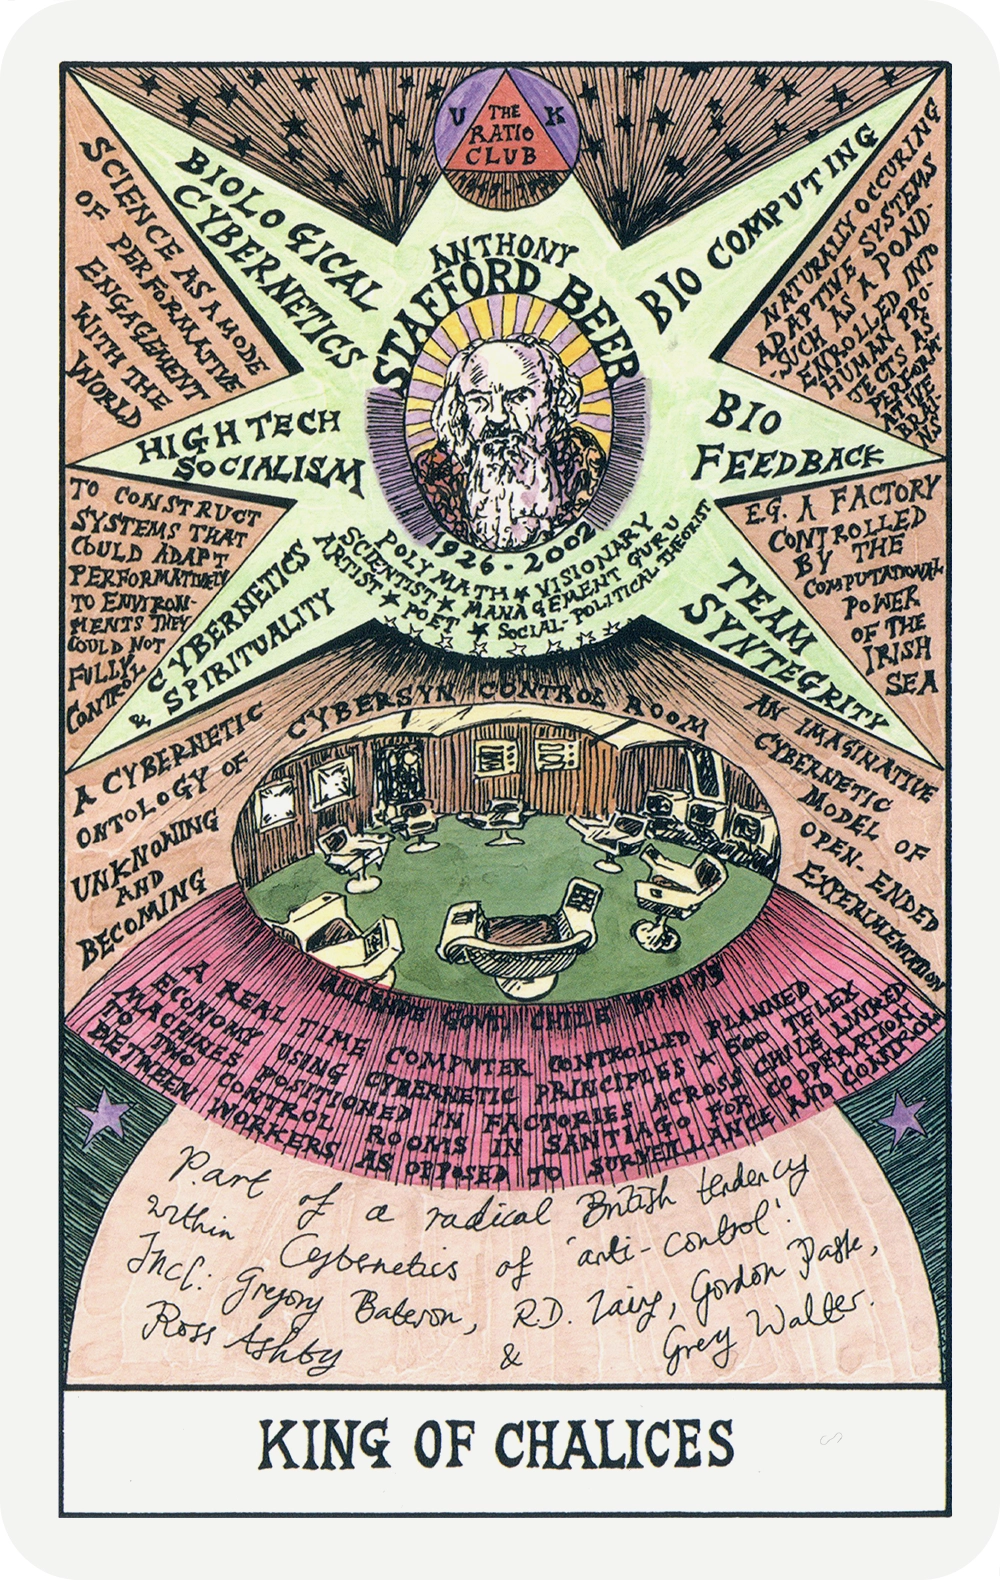 U K
THE
RATIO
CLUB
BIOLOGICAL
CYBERNETICS
BIO COMPUTING
SCIENCE AS A MODE
OF PERFORMATIVE
ENGAGEMENT
WITH THE
WORLD
NATURALLY OCCURING
ADAPTIVE SYSTEMS
SUCH AS A POND-
ENROLLED INTO
HUMAN PRO-
JECTS AS
PERFORM-
ATIVE
BRAI-
NS
ANTHONY
STAFFORD BEER
1926 - 2002
POLYMATH ★ VISIONARY
SCIENTIST ★ MANAGEMENT GURU
ARTIST ★ POET ★ SOCIAL-POLITICAL THEORIST
HIGH TECH
SOCIALISM
BIO
FEEDBACK
TO CONSTRUCT
SYSTEMS THAT
COULD ADAPT
PERFORMATIVELY
TO ENVIRON-
MENTS THEY
COULD NOT
FULLY
CONTROL
E.G. A FACTORY
CONTROLLED
BY THE
COMPUTATIONAL
POWER
OF THE
IRISH
SEA
CYBERNETICS
& SPIRITUALITY
TEAM
SYNTEGRITY
A CYBERNETIC
ONTOLOGY OF
UNKNOWING
AND
BECOMING
CYBERSYN CONTROL ROOM
AN IMAGINATIVE
CYBERNETIC
MODEL OF
OPEN-ENDED
EXPERIMENTATION
ALLENDE GOVT. CHILE 1970-73
A REAL TIME COMPUTER CONTROLLED PLANNED
ECONOMY USING CYBERNETIC PRINCIPLES ★ 500 TELEX
MACHINES POSITIONED IN FACTORIES ACROSS CHILE LINKED
TO TWO CONTROL ROOMS IN SANTIAGO FOR COPPERATION
BETWEEN WORKERS AS OPPOSED TO SURVEILLANCE AND CONTROL
Part of a radical British tendency
within Cybernetics of 'anti-control'.
Incl: Gregory Bateson, R.D. Laing, Gordon Pask,
Ross Ashby & Grey Walter.
KING OF CHALICES